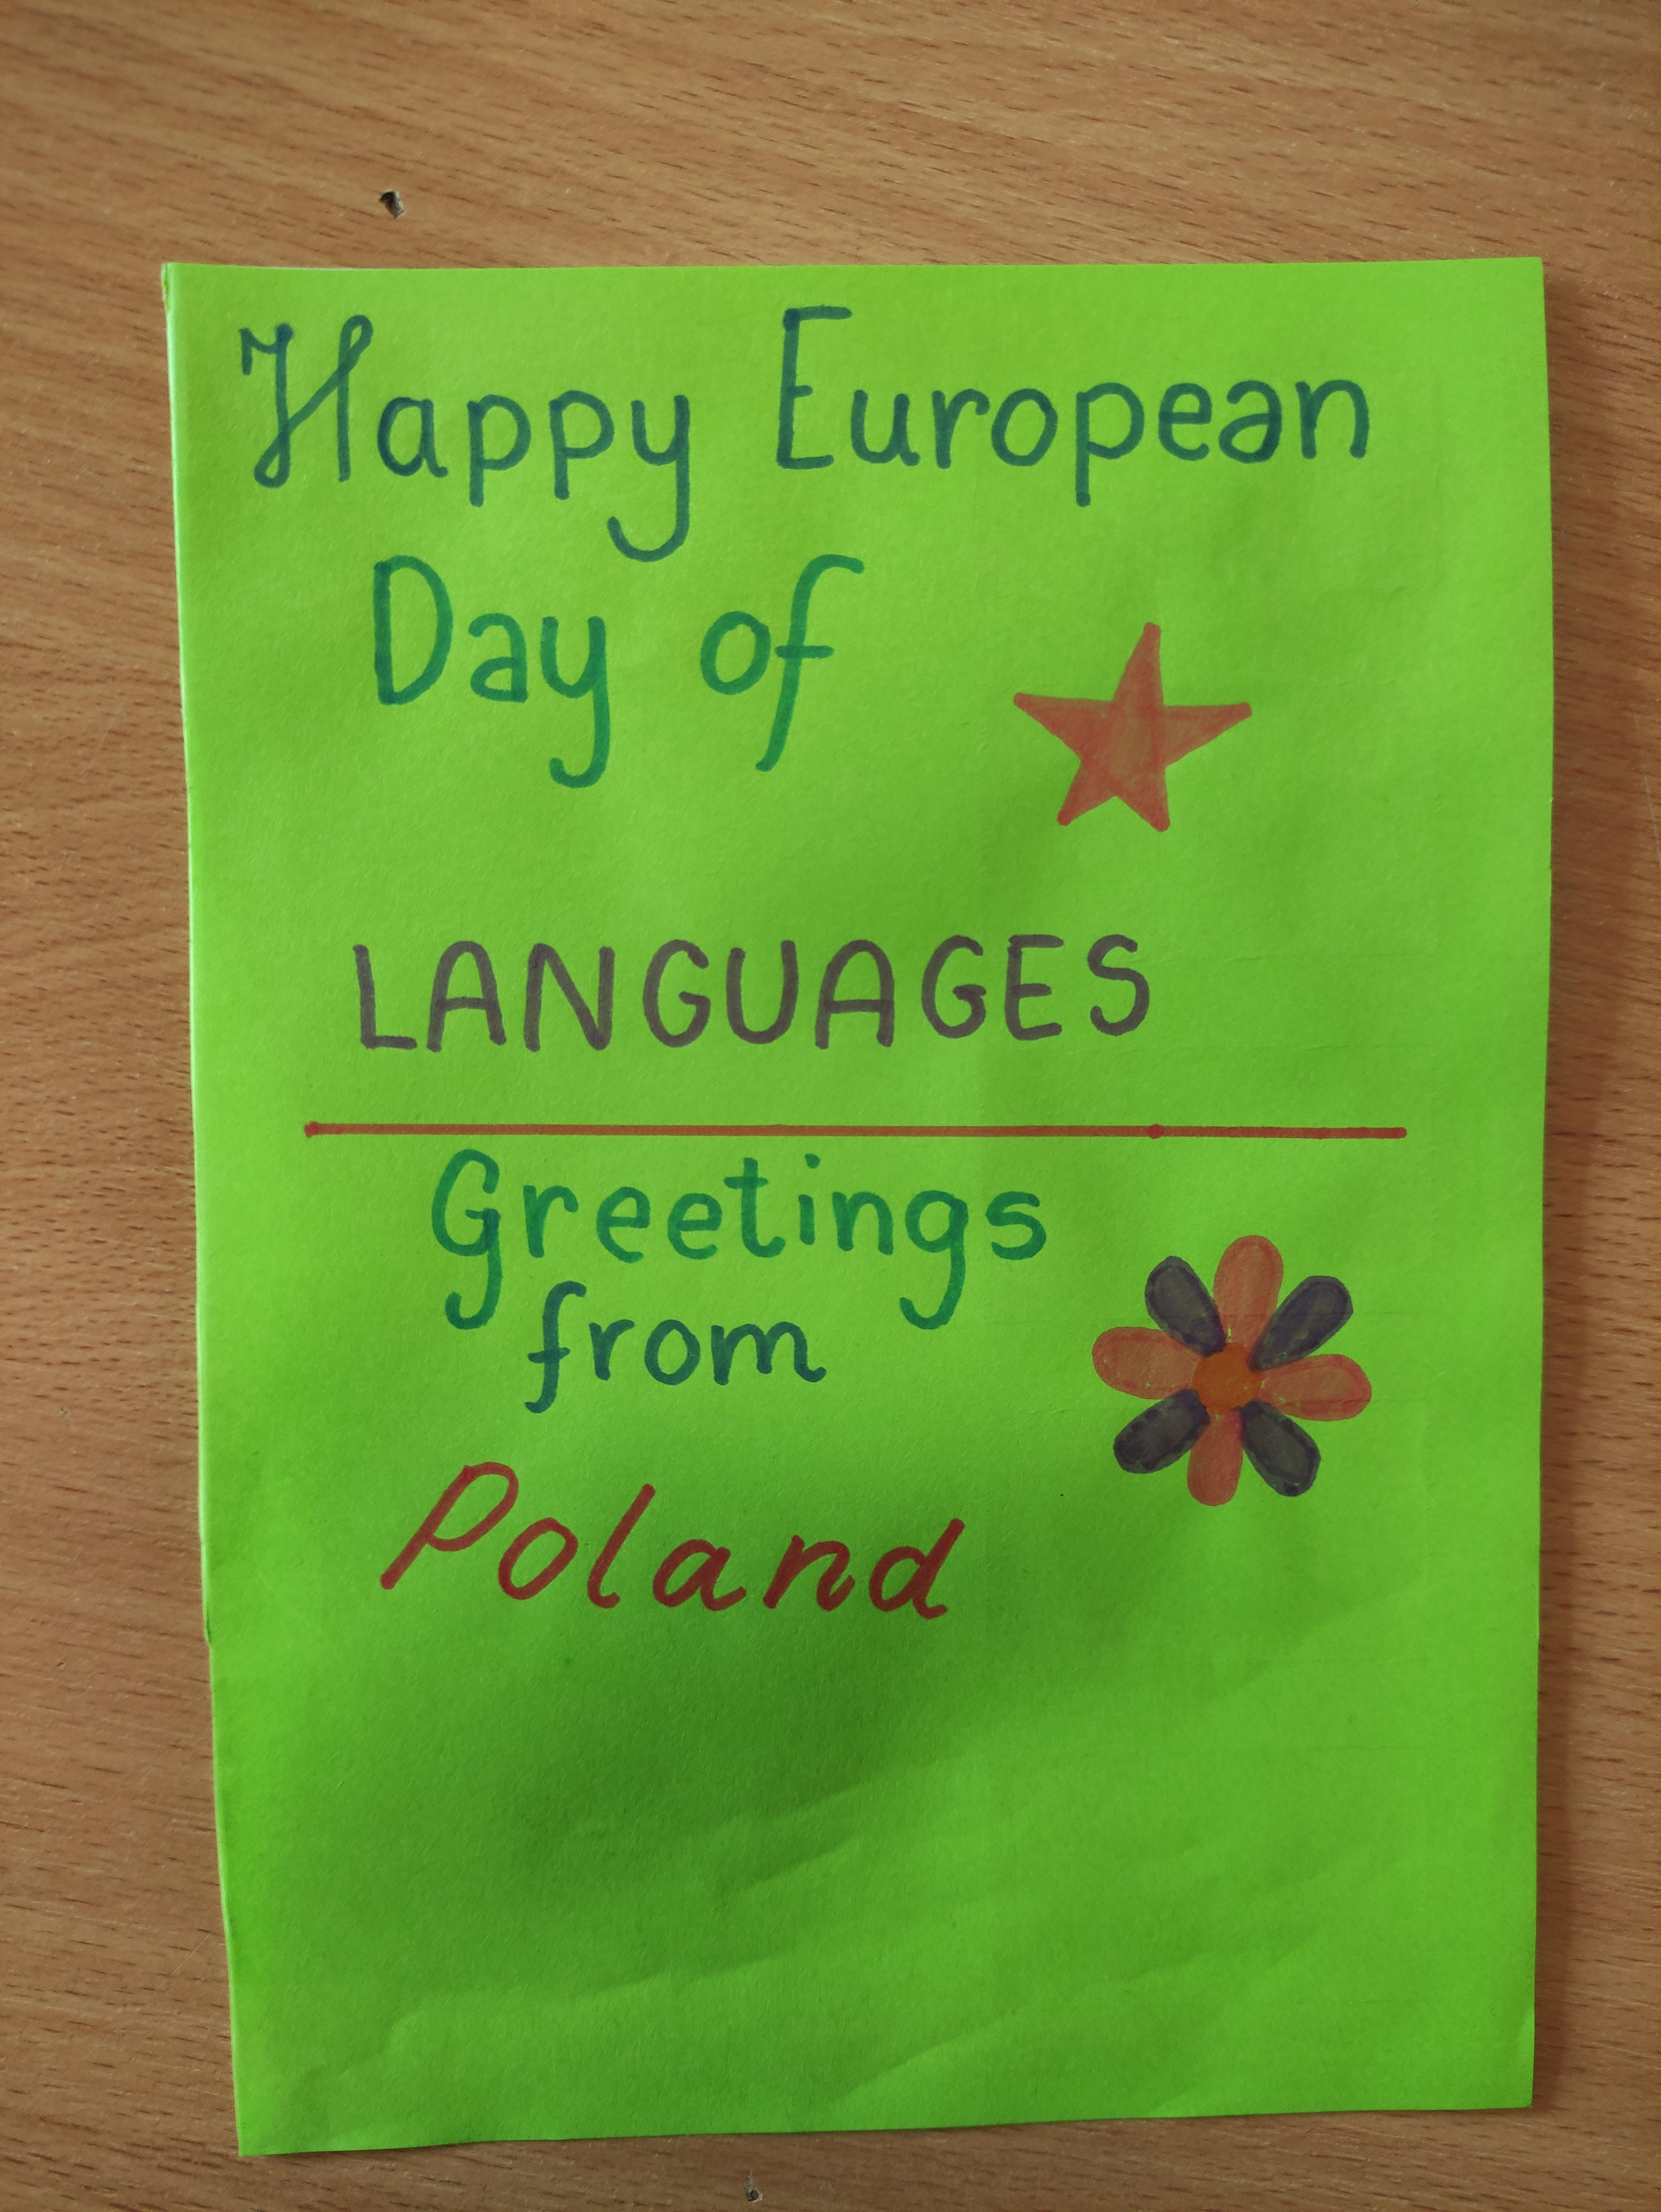 Happy European
Day of
LANGUAGES
Greetings
from
Poland